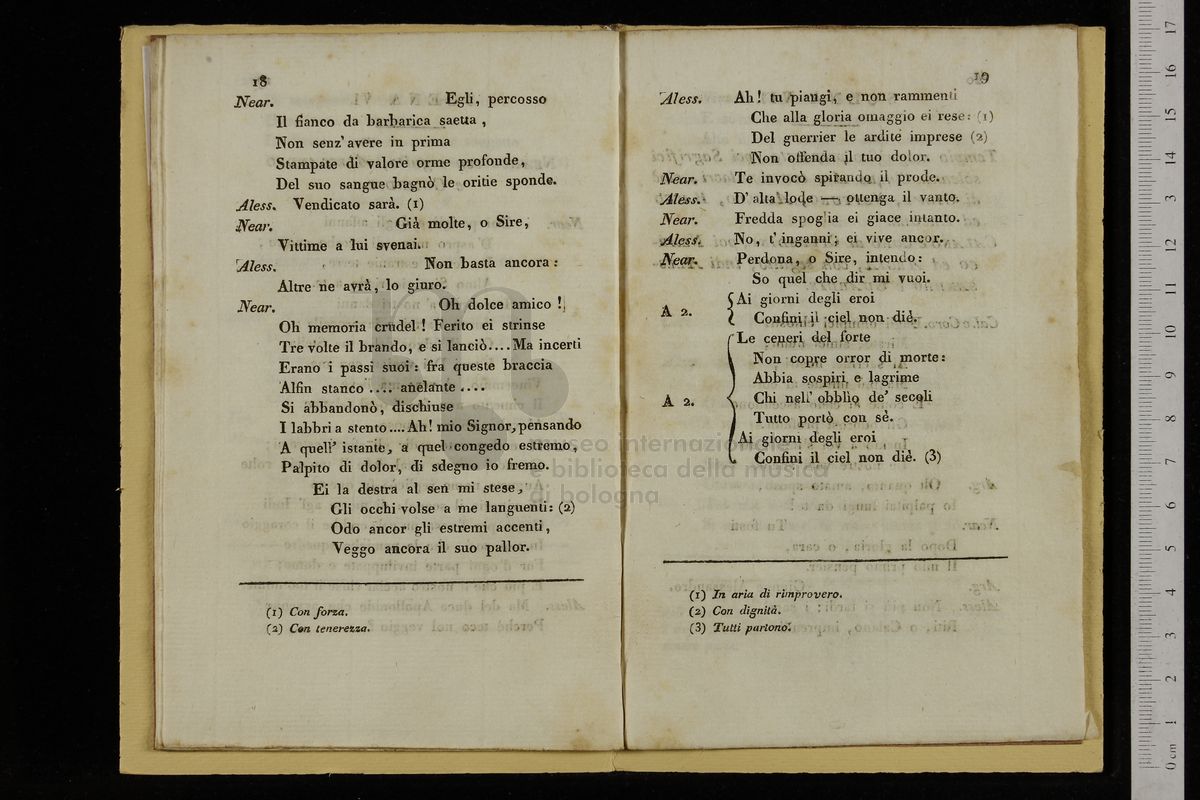 18
Near. Egli, percosso
Il fianco da barbarica saetta ,
Non senz' avere in prima
Stampate di valore orme profonde,
Del suo sangue bagnò le oritie sponde.
Aless. Vendicato sarà. (1)
Near. Già molte, o Sire,
Vittime a lui svenai.
Aless. Non basta ancora :
Altre ne avrà, lo giuro.
Near. Oh dolce amico !
Oh memoria crudel ! Ferito ei strinse
Tre volte il brando, e si lanciò.... Ma incerti
Erano i passi suoi : fra queste braccia
Alfin stanco .... anelante ....
Si abbandonò, dischiuse
I labbri a stento .... Ah! mio Signor, pensando
A quell' istante, a quel congedo estremo,
Palpito di dolor, di sdegno io fremo.
Ei la destra al sen mi stese,
Gli occhi volse a me languenti: (2)
Odo ancor gli estremi accenti,
Veggo ancora il suo pallor.
(1) Con forza.
(2) Con tenerezza.
19
Aless. Ah! tu piangi, e non rammenti
Che alla gloria omaggio ei rese: (1)
Del guerrier le ardite imprese (2)
Non offenda il tuo dolor.
Near. Te invocò spirando il prode.
Aless. D' alta lode — ottenga il vanto.
Near. Fredda spoglia ei giace intanto.
Aless. No, t' inganni; ei vive ancor.
Near. Perdona, o Sire, intendo:
So quel che dir mi vuoi.
A 2. { Ai giorni degli eroi
Confini il ciel non diè.
A 2. { Le ceneri del forte
Non copre orror di morte:
Abbia sospiri e lagrime
Chi nell' obblìo de' secoli
Tutto portò con sè.
Ai giorni degli eroi
Confini il ciel non diè. (3)
(1) In aria di rimprovero.
(2) Con dignità.
(3) Tutti partono.
museo internazionale
e biblioteca della musica
di bologna
0 cm 1 2 3 4 5 6 7 8 9 10 11 12 13 14 15 16 17